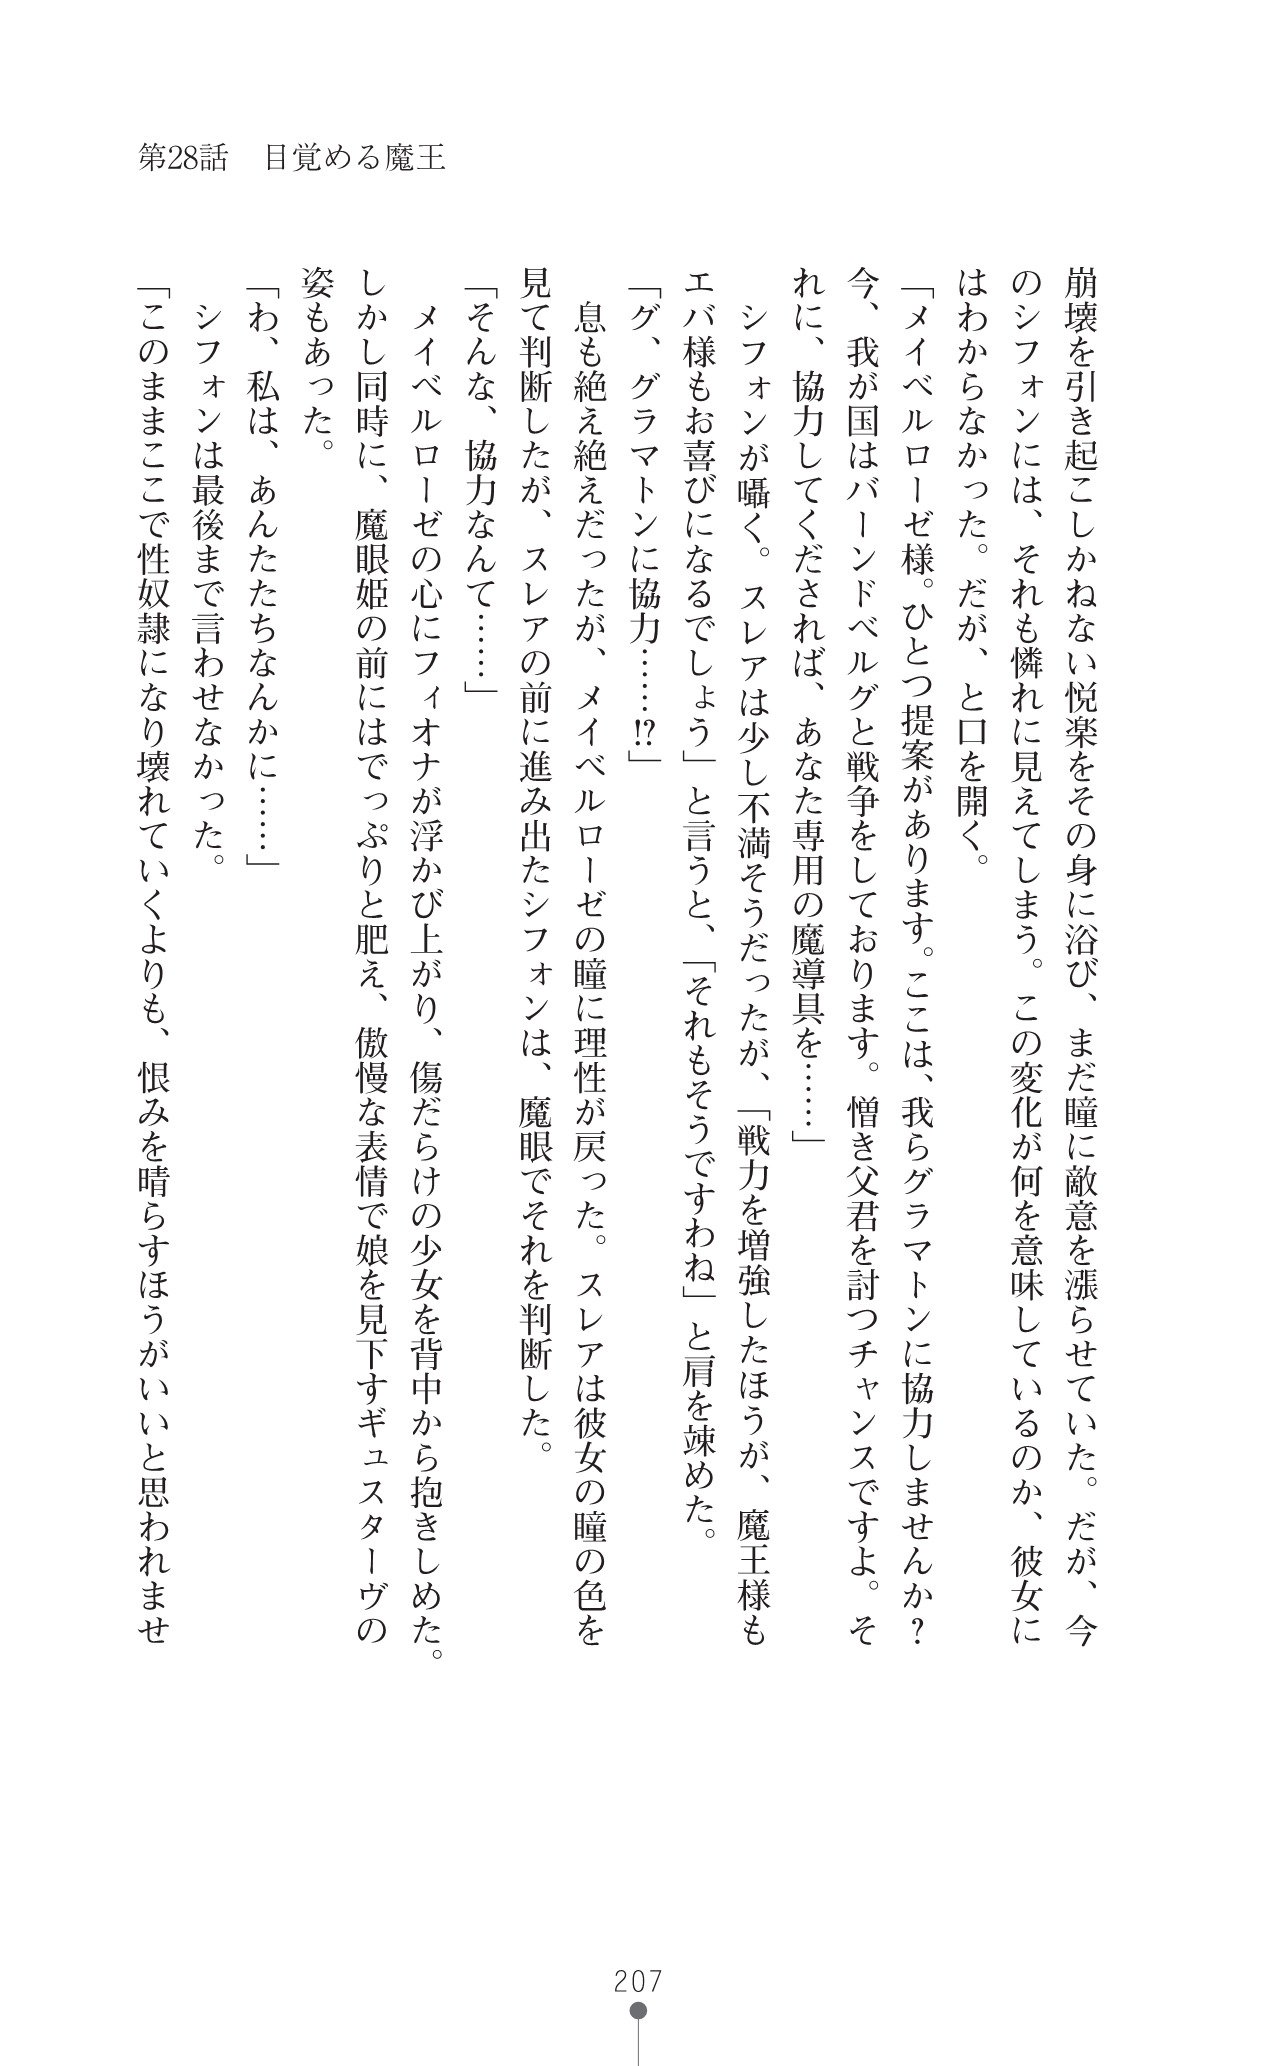 第28話　目覚める魔王
崩壊を引き起こしかねない悦楽をその身に浴び、まだ瞳に敵意を漲らせていた。だが、今
のシフォンには、それも憐れに見えてしまう。この変化が何を意味しているのか、彼女に
はわからなかった。だが、と口を開く。
「メイベルローゼ様。ひとつ提案があります。ここは、我らグラマトンに協力しませんか？
今、我が国はバーンドベルグと戦争をしております。憎き父君を討つチャンスですよ。そ
れに、協力してくだされば、あなた専用の魔導具を……」
　シフォンが囁く。スレアは少し不満そうだったが、「戦力を増強したほうが、魔王様も
エバ様もお喜びになるでしょう」と言うと、「それもそうですわね」と肩を竦めた。
「グ、グラマトンに協力……⁉」
　息も絶え絶えだったが、メイベルローゼの瞳に理性が戻った。スレアは彼女の瞳の色を
見て判断したが、スレアの前に進み出たシフォンは、魔眼でそれを判断した。
「そんな、協力なんて……」
　メイベルローゼの心にフィオナが浮かび上がり、傷だらけの少女を背中から抱きしめた。
しかし同時に、魔眼姫の前にはでっぷりと肥え、傲慢な表情で娘を見下すギュスターヴの
姿もあった。
「わ、私は、あんたたちなんかに……」
　シフォンは最後まで言わせなかった。
「このままここで性奴隷になり壊れていくよりも、恨みを晴らすほうがいいと思われませ
207